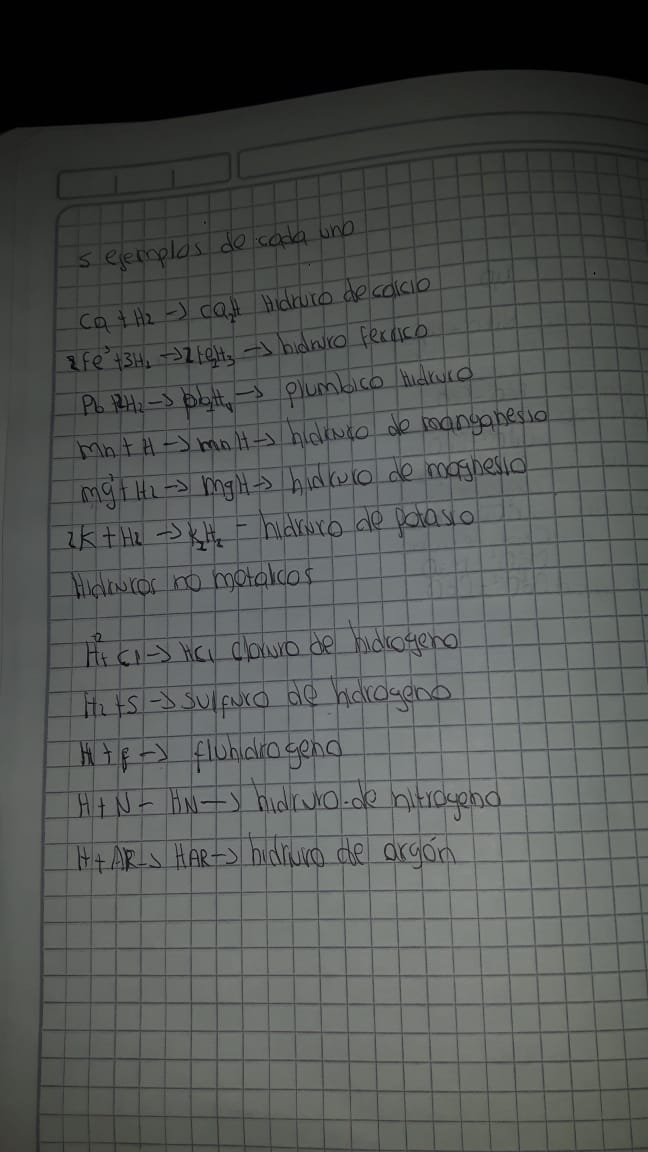 5 ejemplos de cada uno
Ca + H2 → Ca2H Hidruro de calcio
2Fe³+3H2 → 2Fe2H3 → hidruro ferrico
Pb 2H2 → pb2H4 → plumbico hidruro
mn + H → mnH → hidruro de manganesio
mg + H2 → mgH → hidruro de magnesio
2K + H2 → K2H2 - hidruro de potasio
Hidruros no metalicos
H2 + Cl → HCl cloruro de hidrogeno
H2 + S → sulfuro de hidrogeno
H + F → fluhidrogeno
H + N - HN → hidruro de nitrogeno
H + AR → HAR → hidruro de argón